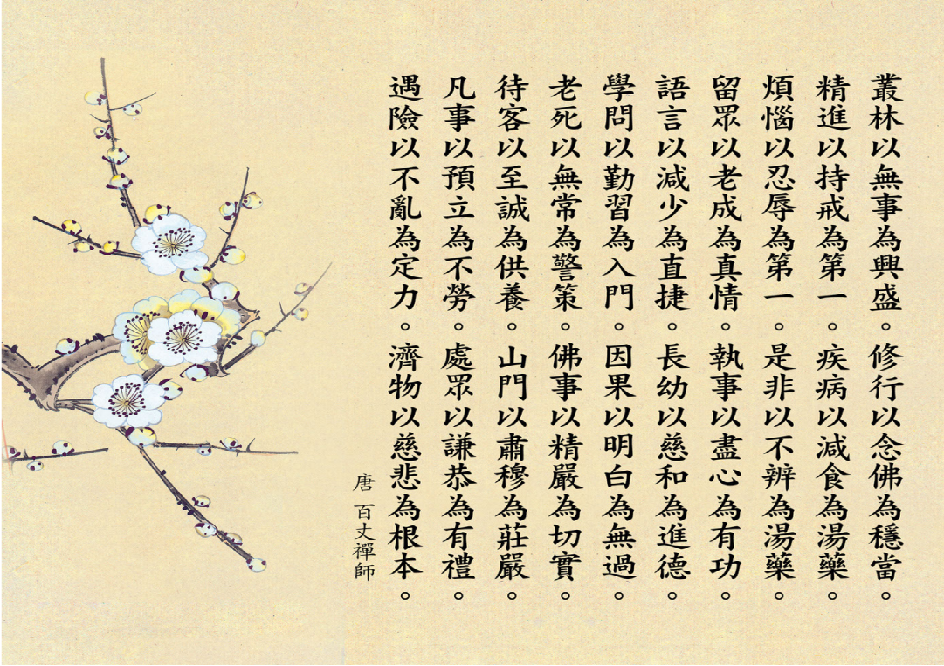 叢林以無事為興盛。修行以念佛為穩當。
精進以持戒為第一。疾病以減食為湯藥。
煩惱以忍辱為第一。是非以不辨為湯藥。
留眾以老成為真情。執事以盡心為有功。
語言以減少為直捷。長幼以慈和為進德。
學問以勤習為入門。因果以明白為無過。
老死以無常為警策。佛事以精嚴為切實。
待客以至誠為供養。山門以肅穆為莊嚴。
凡事以預立為不勞。處眾以謙恭為有禮。
遇險以不亂為定力。濟物以慈悲為根本。
唐 百丈禪師